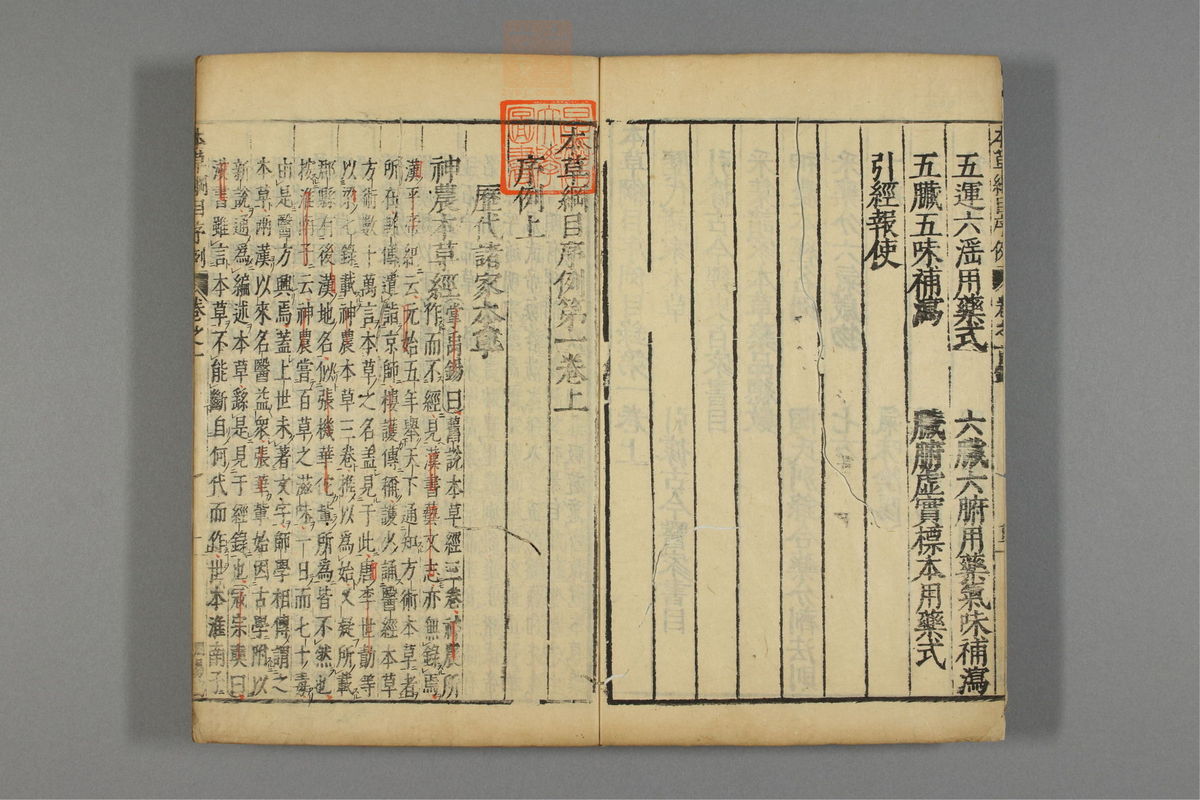 五運六淫用藥式　六臟六腑用藥氣味補瀉
五臟五味補瀉　臟腑虛實標本用藥式
引經報使
本草綱目序例第一卷上
序例上
歷代諸家本草
神農本草經 掌禹錫曰舊說本草經三卷神農所
作而不經見漢書藝文志亦無錄焉
漢平帝紀云元始五年舉天下通知方術本草者
所在軺傳遣詣京師樓護傳稱護少誦醫經本草
方術數十萬言本草之名蓋見于此唐李世勣等
以梁七錄載神農本草三卷推以為始又疑所載
郡縣有後漢地名似張機華佗輩所為皆不然也
按淮南子云神農嘗百草之滋味一日而七十毒
由是醫方興焉蓋上世未著文字師學相傳謂之
本草兩漢以來名醫益衆張華輩始因古學附以
新說通為編述本草繇是見于經錄也寇宗奭曰
漢書雖言本草不能斷自何代而作世本淮南子
本草綱目序例　卷之一